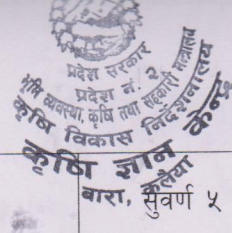 प्रदेश सरकार
प्रदेश नं. २
भूमि व्यवस्था, कृषि तथा सहकारी मन्त्रालय
कृषि विकास निर्देशनालय
कृषि ज्ञान केन्द्र
बारा, कलैया
सुवर्ण ५